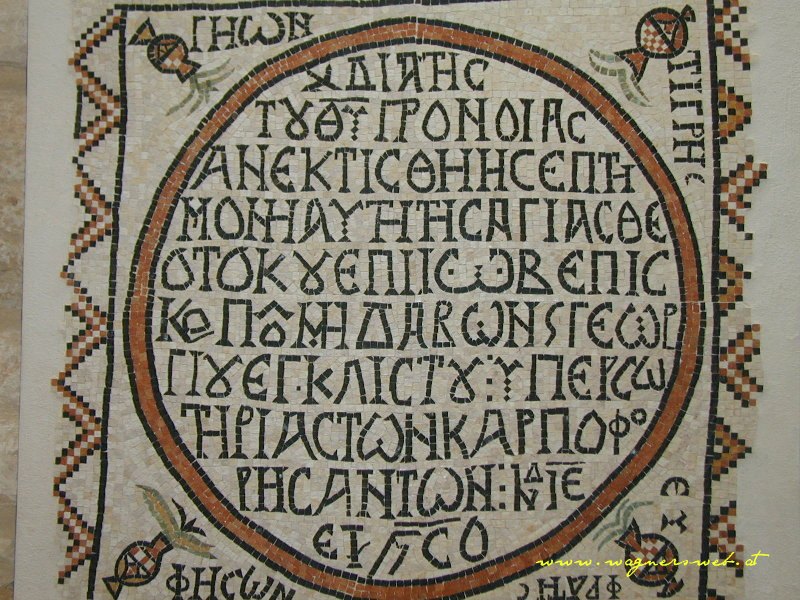 ΓΗΩΝ
ΤΙΓΡΗς
ΔΙΑΤΗς
ΤȢΘΥ ΠΡΟΝΟΙΑς
ΑΝΕΚΤΙΣΘΗΗΣΕΠΤΗ
ΜΟΝΗΑΥΤΗΤΗΣΑΓΙΑΣΘΕ
ΟΤΟΚȢΕΠΙΙΩΒΕΠΙΣ
ΜΗΔΑΒΩΝSΓΕΩΡ
ΓΙȢΕΓ·ΚΛΙΣΤȢ:Υ ΠΕΡΣΩ
ΤΗΡΙΑΣΤΩΝΚΑΡΠΟΦΟ
ΡΗΣΑΝΤΩΝ:ΙΝΔ ΙΕ
ΕΤ ΣΟ
ΦΗΣΩΝ
ΕΥ
ΦΡΑΤΗς
www.wagnersweb.at